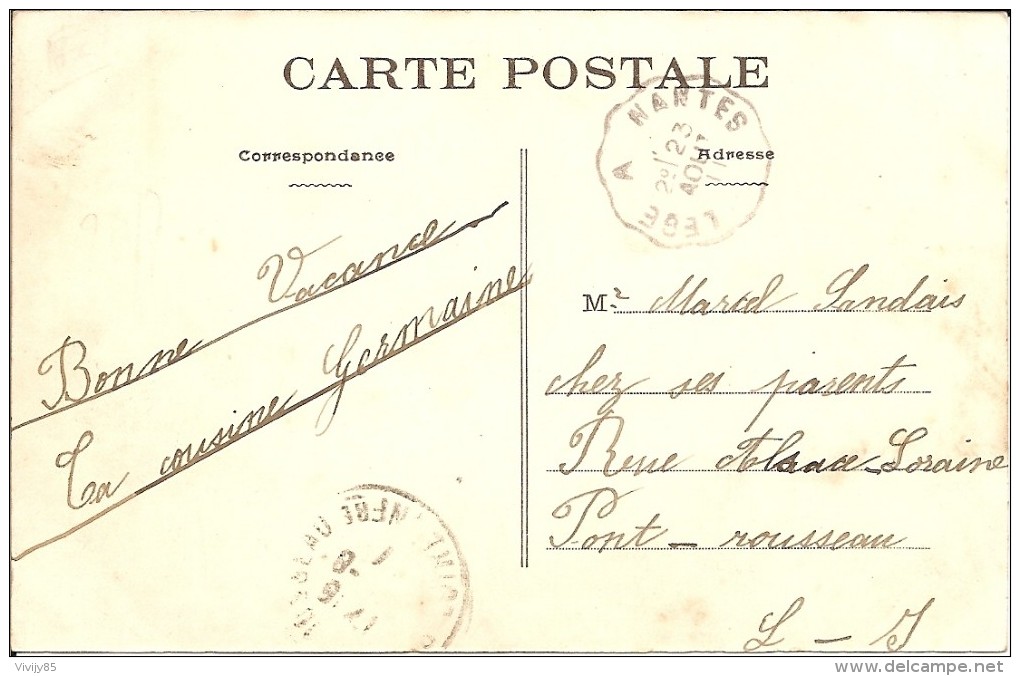 CARTE POSTALE
Correspondance
Adresse
NANTES
23
AOUT
11
A
LEGE
Bonne Vacance
Ta cousine Germaine
Mr Marcel Landais
chez ses parents
Rue Alsace-Loraine
Pont-rousseau
L - I
Vivijy85
delcampe.net